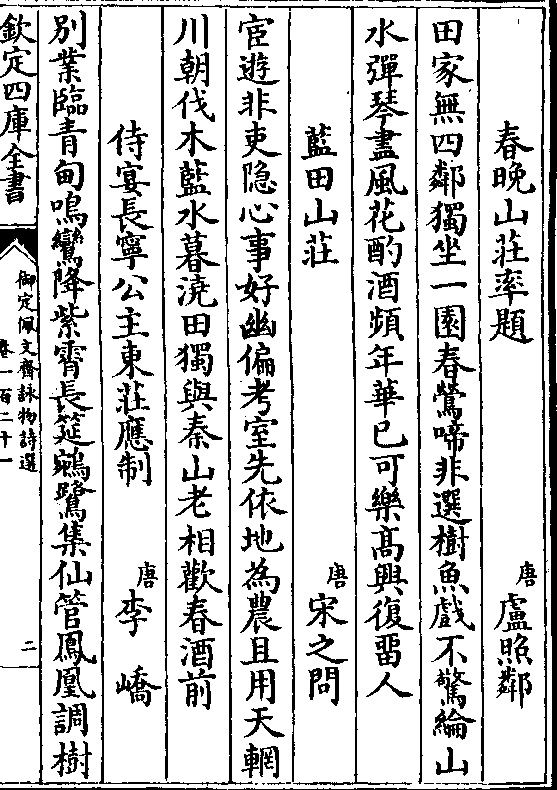 春晚山莊率題　唐盧照鄰
田家無四鄰獨坐一園春鶯啼非選樹魚戲不驚綸山
水彈琴盡風花酌酒頻年華已可樂高興復留人
藍田山莊　唐宋之問
宦遊非吏隱心事好幽偏考室先依地為農且用天輞
川朝伐木藍水暮澆田獨與秦山老相歡春酒前
侍宴長寧公主東莊應制　唐李嶠
別業臨青甸鳴鸞降紫霄長筵鵷鷺集仙管鳳凰調樹
欽定四庫全書
御定佩文齋詠物詩選
卷一百二十一
二